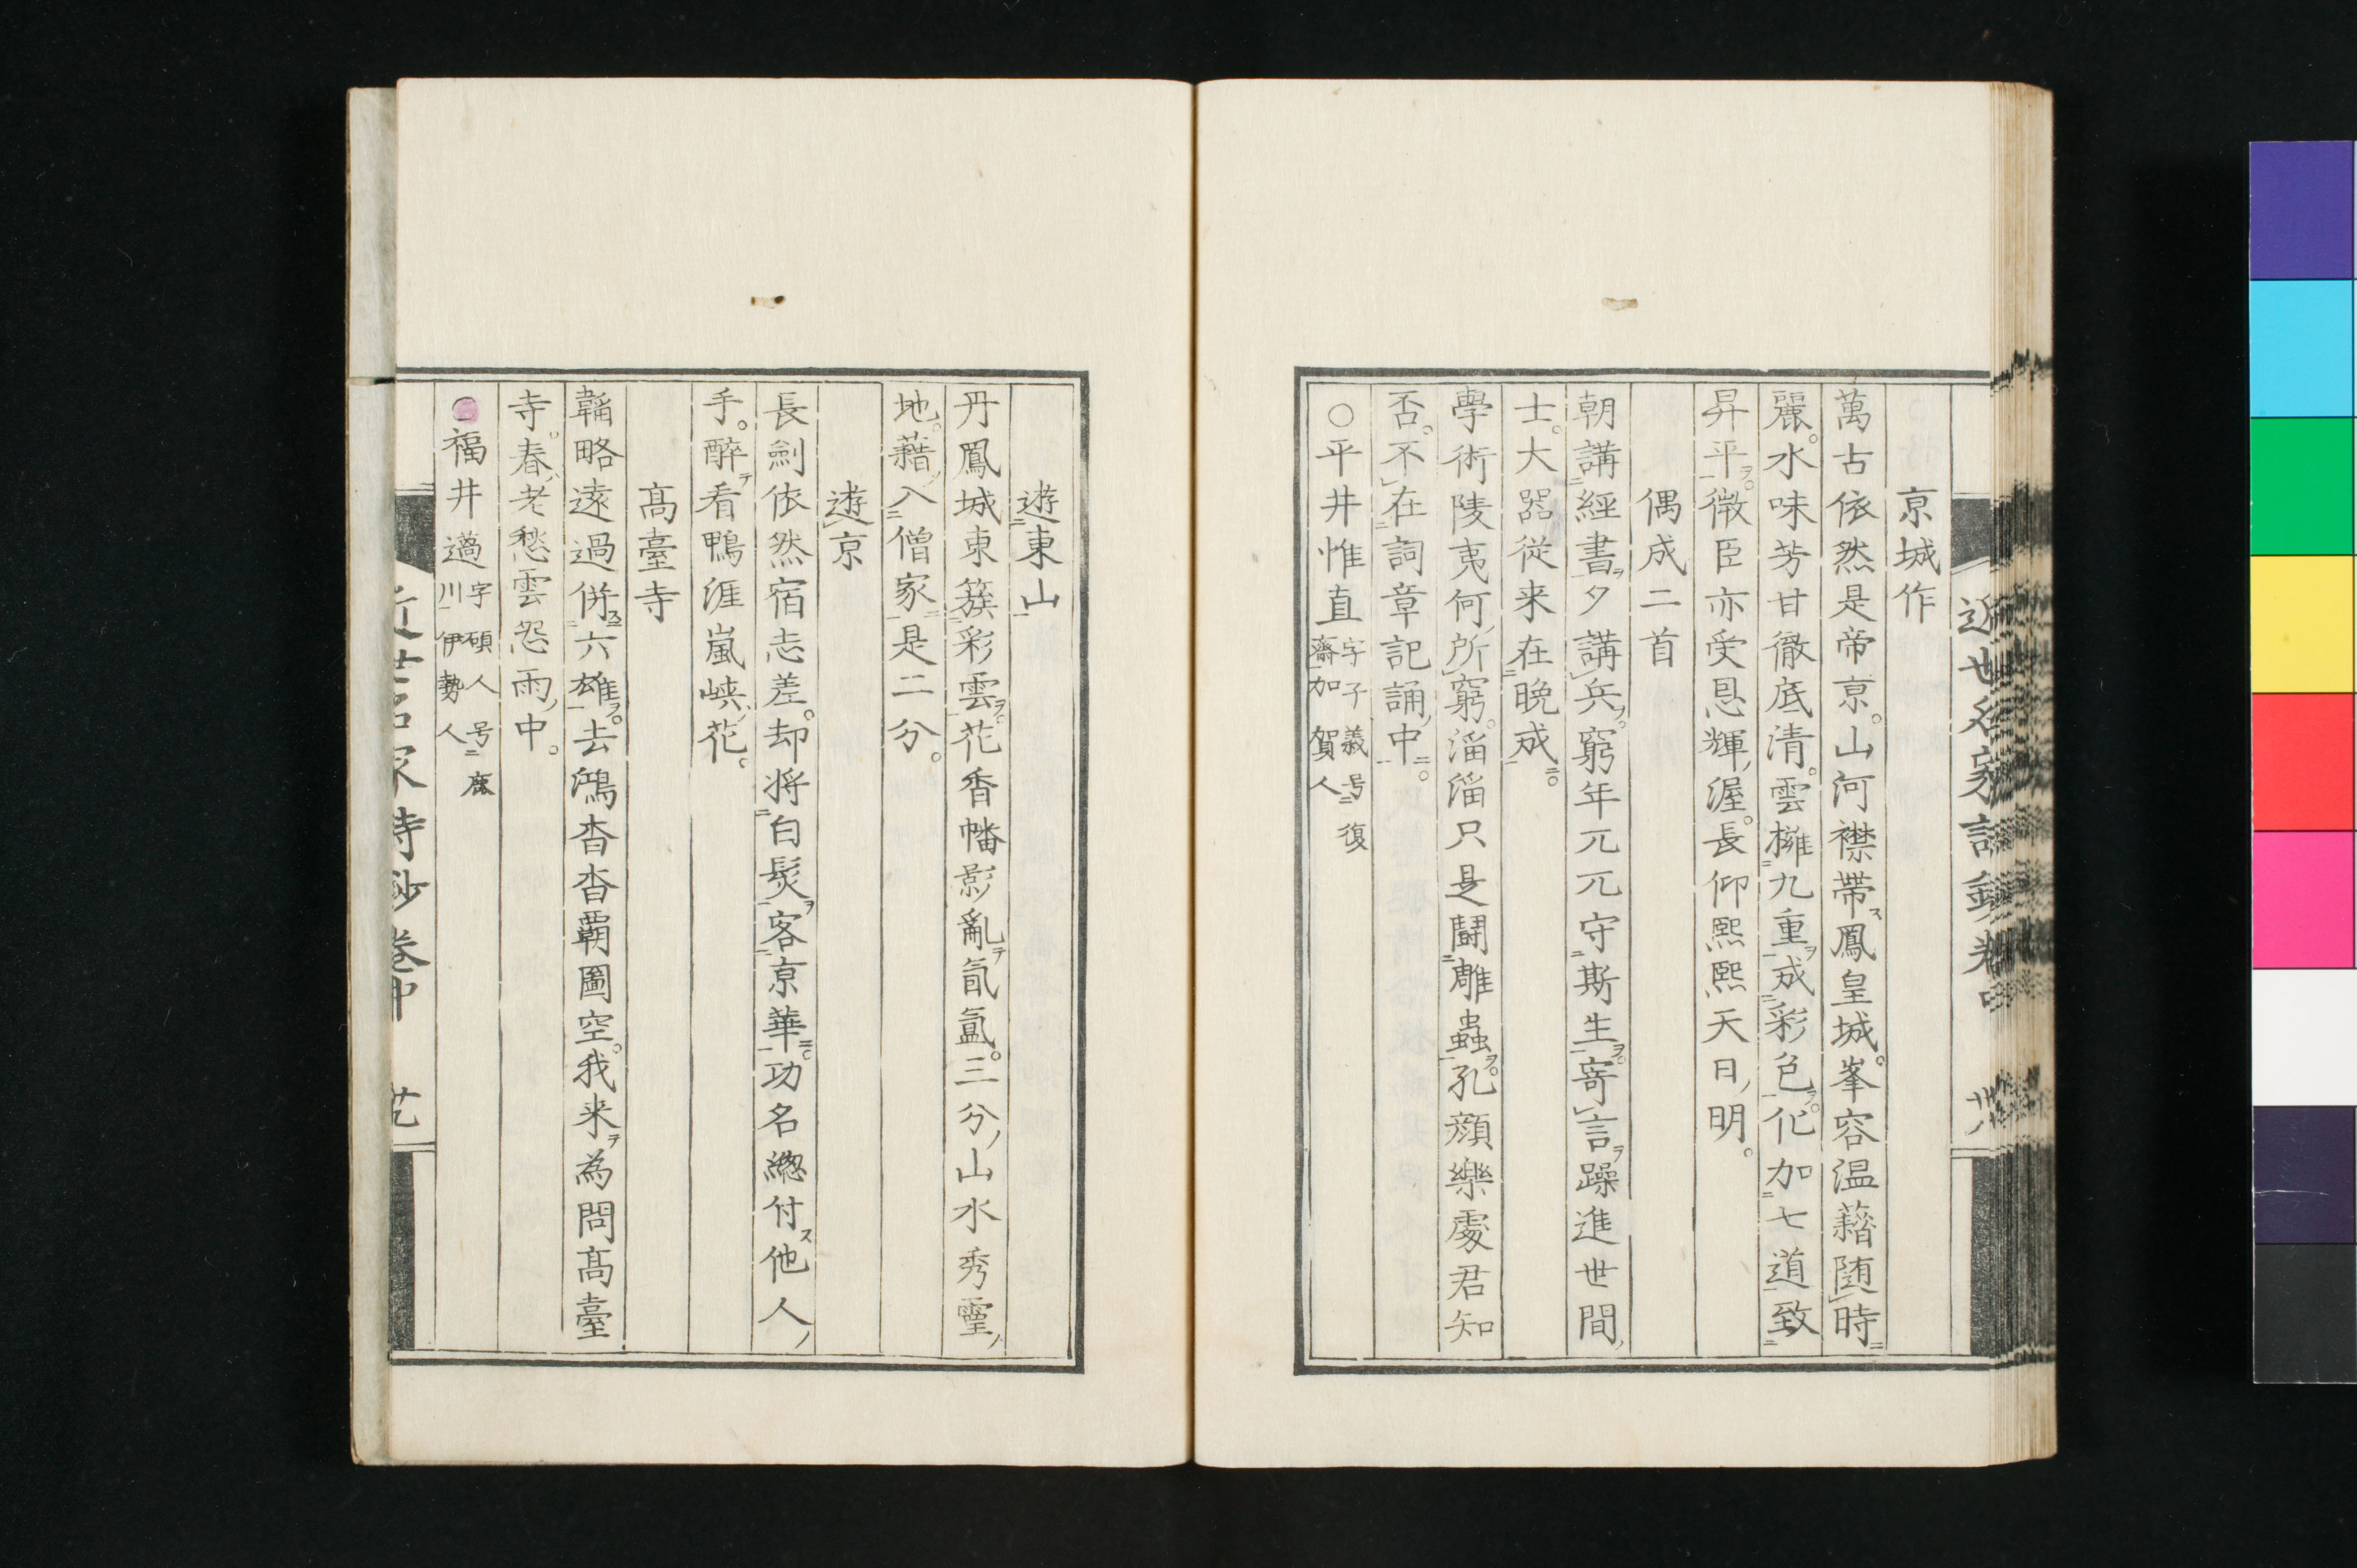 近世名家詩鈔卷中
京城作
萬古依然是帝京。山河襟帶ス鳳皇城。峯容温藉随時
麗。水味芳甘徹底清。雲擁九重ヲ成彩色ヲ。化加七道致
昇平ヲ。微臣亦受恩輝渥。長仰熙熙天日ノ明。
偶成二首
朝講經書ヲ夕講兵ヲ。窮年兀兀守斯生ヲ。寄言ヲ躁進世間ノ
士。大器従来在晩成ニ。
學術陵夷何ノ所窮。淄淄只是鬪雕蟲ヲ。孔顔樂處君知
否。不在詞章記誦ノ中ニ。
○平井惟直字子義号復
齋加賀人
遊東山
丹鳳城東簇彩雲ヲ。花香幡影亂テ氤氳。三分ノ山水秀靈ノ
地。藉ノ入僧家ニ是二分。
遊京
長劍依然宿志差。却將白髮ヲ客京華ニ。功名總付ス他人ノ
手。醉テ看鴨涯嵐峽ノ花。
髙臺寺
韜略遠過併六雄ヲ。去鴻杳杳覇圖空。我来ヲ為問髙臺
寺。春ノ老愁雲怨雨ノ中。
○福井邁字碩人号鹿
川伊勢人
近世名家詩鈔卷中